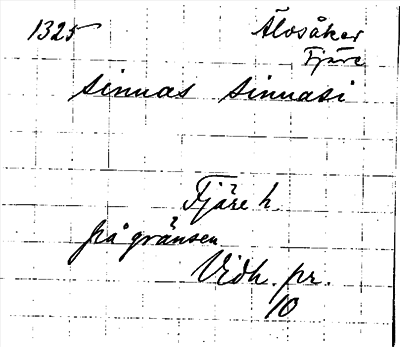 1325 Älvsåker
Fjäre
sinnas sinnasi
Fjäre h.
på gränsen
Vidh. pr.
10